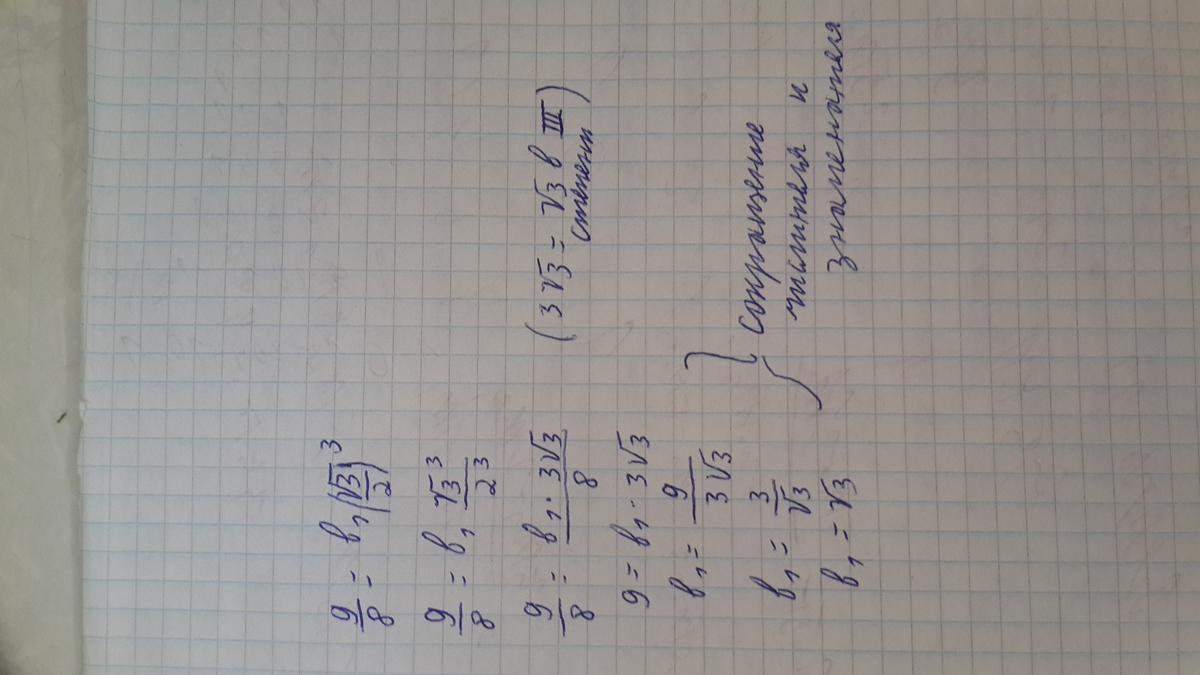 9/8 = b₁(√3/2)³
9/8 = b₁ √3³/2³
9/8 = b₁ · 3√3/8 (3√3 = √3 в III
степени)
9 = b₁ · 3√3
b₁ = 9/3√3
b₁ = 3/√3
b₁ = √3
} сокращение
числителя и
знаменателя